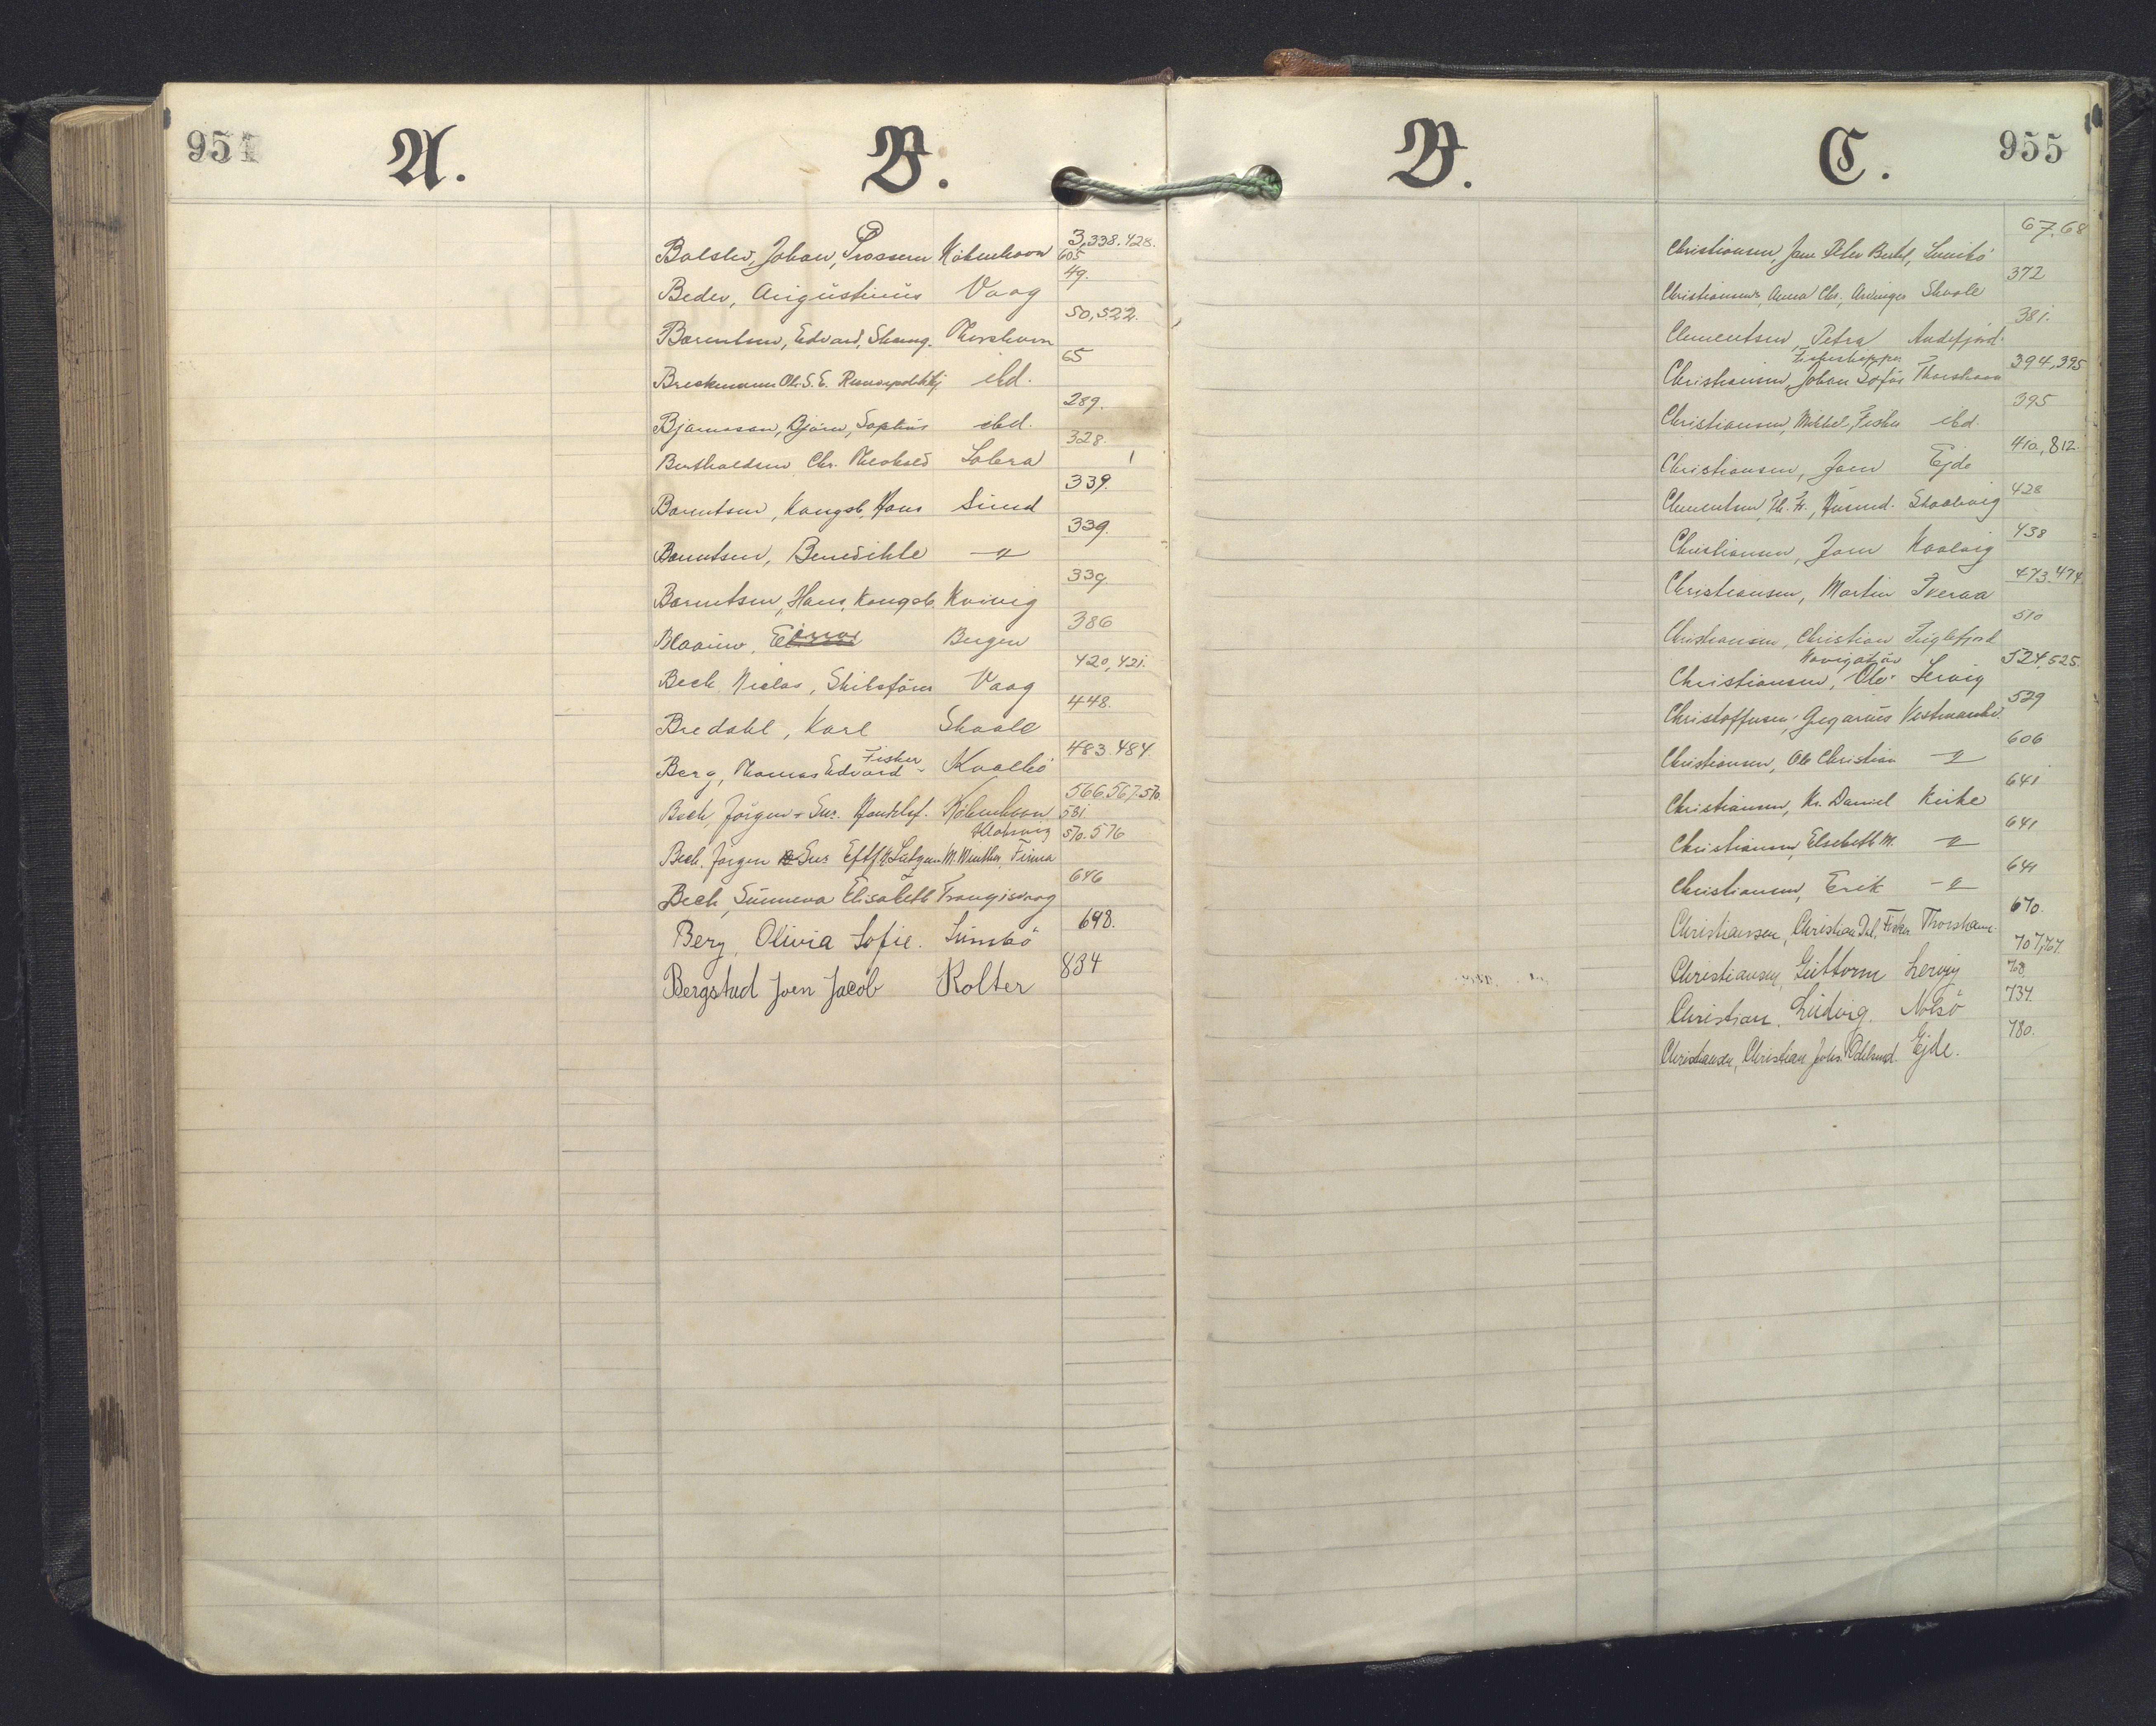 954
A.
B.
Balslev, Johan, København 3,338.428.
605
Beder, Augustinus Vaag 49.
Barentsen, Edvard, Thorshavn 50,522.
Breckmann Ole S. E. ibd. 65
Bjarnason, Bjørn, Sophus ibd. 289.
Bertholdsen Chr. 328.
Barentsen, Kongsb, Hans Sund 339.
Barentsen, Benedikte -"- 339.
Barentsen, Hans, Kongsb. Kvivig 339.
Blaauw, Bergen 386
Bech Niclas, Skibsfører Vaag 420,421.
Bredahl, Karl Skaale 448.
Fisker
Berg, Thomas Edvard - Kvalbø 483.484.
Bech, Jørgen + Sør. Handelsf. København 566.567.570.
581
Klaksvig
Bech. Jørgen Eftf. V. Lützen M. Winther, Firma 570.576
Bech, Sunneva Elisabeth Trangisvaag 646
Berg, Olivia Sofie. Sumbö 648.
Bergstad Joen Jacob Kolter 834
B.
C. 955
Christiansen, Jens Peter Sumbö 67.68
Christiansen, Anna Chr. Skaale 372
Clementsen, Petra Andefjord. 381.
Christiansen, Johan Sofus Thorshavn 394,395
Christiansen, Mikkel, Fisker ibd. 395
Christiansen, Joen Ejde 410.,812.
Clementsen, Husmd. 428
Christiansen, Joen Kvalvig 438
Christiansen, Martin Tveraa 473.474
Christiansen, Christian Fuglefjord 510
Navigatør
Christiansen, Ole Lervig 524,525.
Christoffersen, Gregarius Vestmanhv. 529
Christiansen, Ole Christian -"- 606
Christiansen, Kr. Daniel Kirke 641
Christiansen, Elsebeth M. -"- 641
Christiansen, Erik -"- 641
Christiansen, Christian Fisker Thorshavn. 670.
Christiansen, Guttorm Lervig 707,767.
768
Christian. Ludvig. Nolsö 734.
Christiansen, Christian Johs. Odelsmd. Ejde. 780.